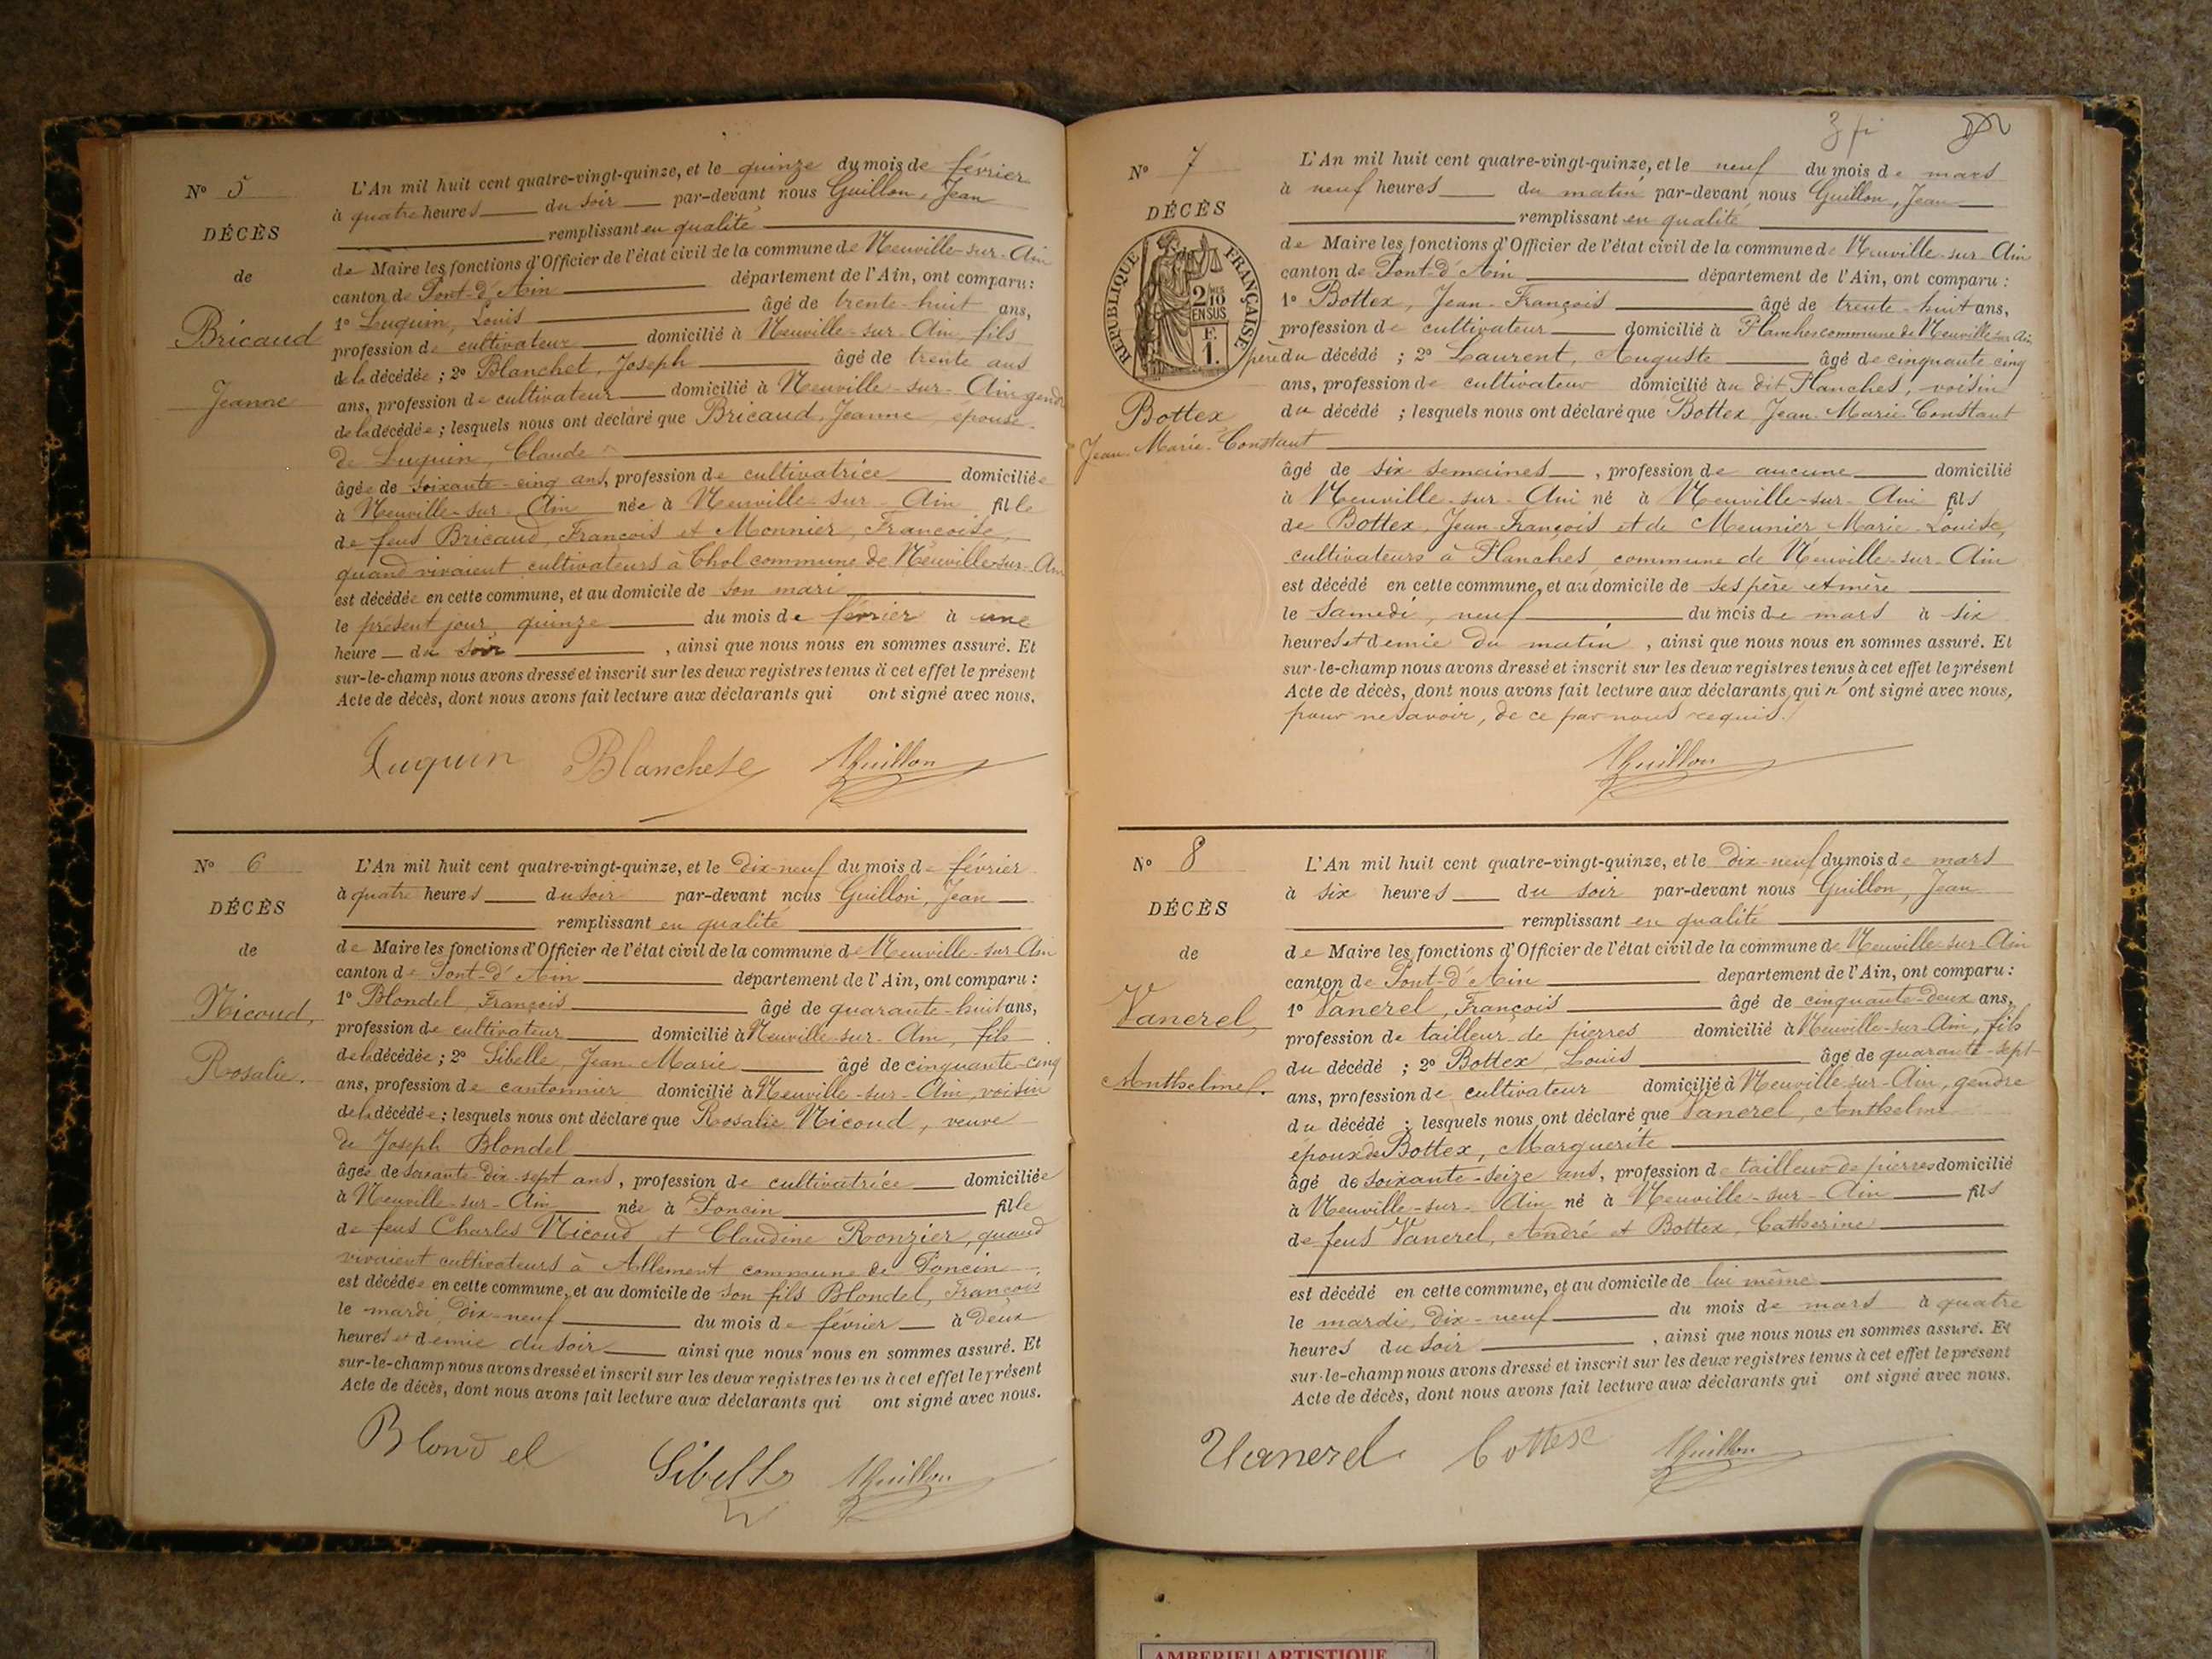 N° 5
DÉCÈS
de
Bricaud
Jeanne
L'An mil huit cent quatre-vingt-quinze, et le quinze du mois de février
à quatre heures du soir par-devant nous Guillon, Jean
remplissant en qualité
de Maire les fonctions d'Officier de l'état civil de la commune de Neuville-sur-Ain
canton de Pont-d'Ain département de l'Ain, ont comparu :
1° Luquin, Louis âgé de trente-huit ans,
profession de cultivateur domicilié à Neuville-sur-Ain, fils
de la décédée ; 2° Blanchet, Joseph âgé de trente ans
ans, profession de cultivateur domicilié à Neuville-sur-Ain gendre
de la décédée ; lesquels nous ont déclaré que Bricaud, Jeanne épouse
de Luquin, Claude
âgée de soixante-cinq ans, profession de cultivatrice domiciliée
à Neuville-sur-Ain née à Neuville-sur-Ain fille
de feus Bricaud, François et Monnier, Françoise,
quand vivaient cultivateurs à Thol commune de Neuville-sur-Ain
est décédée en cette commune, et au domicile de son mari
le présent jour quinze du mois de février à une
heure du soir , ainsi que nous nous en sommes assuré. Et
sur-le-champ nous avons dressé et inscrit sur les deux registres tenus à cet effet le présent
Acte de décès, dont nous avons fait lecture aux déclarants qui ont signé avec nous.
Luquin Blanchet JGuillon
N° 6
DÉCÈS
de
Nicoud,
Rosalie.
L'An mil huit cent quatre-vingt-quinze, et le dix-neuf du mois de février
à quatre heures du soir par-devant nous Guillon, Jean
remplissant en qualité
de Maire les fonctions d'Officier de l'état civil de la commune de Neuville-sur-Ain
canton de Pont-d'Ain département de l'Ain, ont comparu :
1° Blondel, François âgé de quarante-huit ans,
profession de cultivateur domicilié à Neuville-sur-Ain, fils
de la décédée ; 2° Sibelle, Jean-Marie âgé de cinquante-cinq
ans, profession de cantonnier domicilié à Neuville-sur-Ain, voisin
de la décédée ; lesquels nous ont déclaré que Rosalie Nicoud, veuve
de Joseph Blondel
âgée de soixante-dix-sept ans, profession de cultivatrice domiciliée
à Neuville-sur-Ain née à Poncin fille
de feus Charles Nicoud et Claudine Ronzier, quand
vivaient cultivateurs à Allement commune de Poncin
est décédée en cette commune, et au domicile de son fils Blondel, François
le mardi dix-neuf du mois de février à deux
heures et demie du soir ainsi que nous nous en sommes assuré. Et
sur-le-champ nous avons dressé et inscrit sur les deux registres tenus à cet effet le présent
Acte de décès, dont nous avons fait lecture aux déclarants qui ont signé avec nous.
Blondel Sibelle JGuillon
N° 7
DÉCÈS
RÉPUBLIQUE FRANÇAISE
2 MES
10
EN SUS
F.
1.
Bottex
Jean-Marie-Constant
L'An mil huit cent quatre-vingt-quinze, et le neuf du mois de mars
à neuf heures du matin par-devant nous Guillon, Jean
remplissant en qualité
de Maire les fonctions d'Officier de l'état civil de la commune de Neuville-sur-Ain
canton de Pont-d'Ain département de l'Ain, ont comparu :
1° Bottex, Jean-François âgé de trente-huit ans,
profession de cultivateur domicilié à Planches commune de Neuville-sur-Ain,
père du décédé ; 2° Laurent, Auguste âgé de cinquante cinq
ans, profession de cultivateur domicilié au dit Planches, voisin
du décédé ; lesquels nous ont déclaré que Bottex Jean-Marie Constant
âgé de six semaines , profession de aucune domicilié
à Neuville-sur-Ain né à Neuville-sur-Ain fils
de Bottex, Jean-François et de Meunier Marie-Louise,
cultivateurs à Planches commune de Neuville-sur-Ain
est décédé en cette commune, et au domicile de ses père et mère
le samedi, neuf du mois de mars à six
heures et demie du matin , ainsi que nous nous en sommes assuré. Et
sur-le-champ nous avons dressé et inscrit sur les deux registres tenus à cet effet le présent
Acte de décès, dont nous avons fait lecture aux déclarants qui n'ont signé avec nous,
pour ne savoir, de ce par nous requis.
JGuillon
N° 8
DÉCÈS
de
Vanerel,
Anthelme.
L'An mil huit cent quatre-vingt-quinze, et le dix-neuf du mois de mars
à six heures du soir par-devant nous Guillon, Jean
remplissant en qualité
de Maire les fonctions d'Officier de l'état civil de la commune de Neuville-sur-Ain
canton de Pont-d'Ain département de l'Ain, ont comparu :
1° Vanerel, François âgé de cinquante-deux ans,
profession de tailleur de pierres domicilié à Neuville-sur-Ain, fils
du décédé ; 2° Bottex, Louis âgé de quarante-sept
ans, profession de cultivateur domicilié à Neuville-sur-Ain, gendre
du décédé ; lesquels nous ont déclaré que Vanerel, Anthelme
époux de Bottex, Marguerite
âgé de soixante-seize ans, profession de tailleur de pierres domicilié
à Neuville-sur-Ain né à Neuville-sur-Ain fils
de feus Vanerel, André et Bottex, Catherine
est décédé en cette commune, et au domicile de lui même
le mardi, dix-neuf du mois de mars à quatre
heures du soir , ainsi que nous nous en sommes assuré. Et
sur-le-champ nous avons dressé et inscrit sur les deux registres tenus à cet effet le présent
Acte de décès, dont nous avons fait lecture aux déclarants qui ont signé avec nous.
Vanerel Bottex JGuillon
AMBERIEU ARTISTIQUE